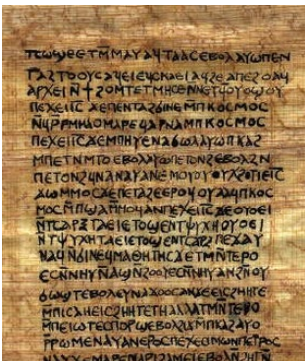 ⲧⲥⲱϣⲉ ⲉⲧⲙⲙⲁⲩ ⲁϥⲧⲁⲁⲥ ⲉⲃⲟⲗ ⲁⲩⲱ ⲡⲉⲛ
ⲧⲁϩⲧⲟⲟⲩⲥ ⲁϥⲉⲓ ⲉϥⲥⲕⲁⲉⲓ ⲁϥϩⲉ ⲁⲡⲉϩⲟ ⲁϥ
ⲁⲣⲭⲉⲓ ⲛϯ ϩⲟⲙⲧ ⲉⲧⲙⲏⲥⲉ ⲛⲛⲉⲧϥⲟⲩⲟϣⲟⲩ
ⲡⲉϫⲉ ⲓⲥ ϫⲉ ⲡⲉⲛⲧⲁϩϭⲓⲛⲉ ⲙⲡⲕⲟⲥⲙⲟⲥ
ⲛϥⲣ ⲣⲙⲙⲁⲟ ⲙⲁⲣⲉϥⲁⲣⲛⲁ ⲙⲡⲕⲟⲥⲙⲟⲥ
ⲡⲉϫⲉ ⲓⲥ ϫⲉ ⲙⲡⲏⲩⲉ ⲛⲁϭⲱⲗ ⲁⲩⲱ ⲡⲕⲁϩ
ⲙⲡⲉⲧⲛⲙⲧⲟ ⲉⲃⲟⲗ ⲁⲩⲱ ⲡⲉⲧⲟⲛϩ ⲉⲃⲟⲗ ϩⲛ
ⲡⲉⲧⲟⲛϩ ϥⲛⲁⲛⲁⲩ ⲁⲛ ⲉⲙⲟⲩ ⲟⲩⲭ ϩⲟⲧⲓ ⲉⲓⲥ
ϫⲱ ⲙⲙⲟⲥ ϫⲉ ⲡⲉⲧⲁϩⲉ ⲉⲣⲟϥ ⲟⲩⲁⲁϥ ⲡⲕⲟⲥ
ⲙⲟⲥ ⲙⲡϣⲁ ⲙⲙⲟϥ ⲁⲛ ⲡⲉϫⲉ ⲓⲥ ϫⲉ ⲟⲩⲟⲉⲓ
ⲛⲧⲥⲁⲣⲝ ⲧⲁⲉⲓ ⲉⲧⲟϣⲉ ⲛⲧⲯⲩⲭⲏ ⲟⲩⲟⲉⲓ
ⲛⲧⲯⲩⲭⲏ ⲧⲁⲉⲓ ⲉⲧⲟϣⲉ ⲛⲧⲥⲁⲣⲝ ⲡⲉϫⲁⲩ
ⲛⲁϥ ⲛϭⲓ ⲛⲉϥⲙⲁⲑⲏⲧⲏⲥ ϫⲉ ⲧⲙⲛⲧⲉⲣⲟ
ⲉⲥⲛⲛⲏⲩ ⲛⲁϣ ⲛϩⲟⲟⲩ ⲉⲥⲛⲛⲏⲩ ⲁⲛ ϩⲛ ⲟⲩ
ϭⲱϣⲧ ⲉⲃⲟⲗ ⲉⲩⲛⲁϫⲟⲟⲥ ⲁⲛ ϫⲉ ⲉⲓⲥ ϩⲏⲏⲧⲉ
ⲙⲡⲓⲥⲁ ⲏ ⲉⲓⲥ ϩⲏⲏⲧⲉ ⲧⲏ ⲁⲗⲗⲁ ⲧⲙⲛⲧⲉⲣⲟ
ⲙⲡⲉⲓⲱⲧ ⲉⲥⲡⲟⲣϣ ⲉⲃⲟⲗ ϩⲓϫⲙ ⲡⲕⲁϩ ⲁⲩⲱ
ⲣⲣⲱⲙⲉ ⲛⲁⲩ ⲁⲛ ⲉⲣⲟⲥ ⲡⲉϫⲉ ⲥⲓⲙⲱⲛ ⲡⲉⲧⲣⲟⲥ